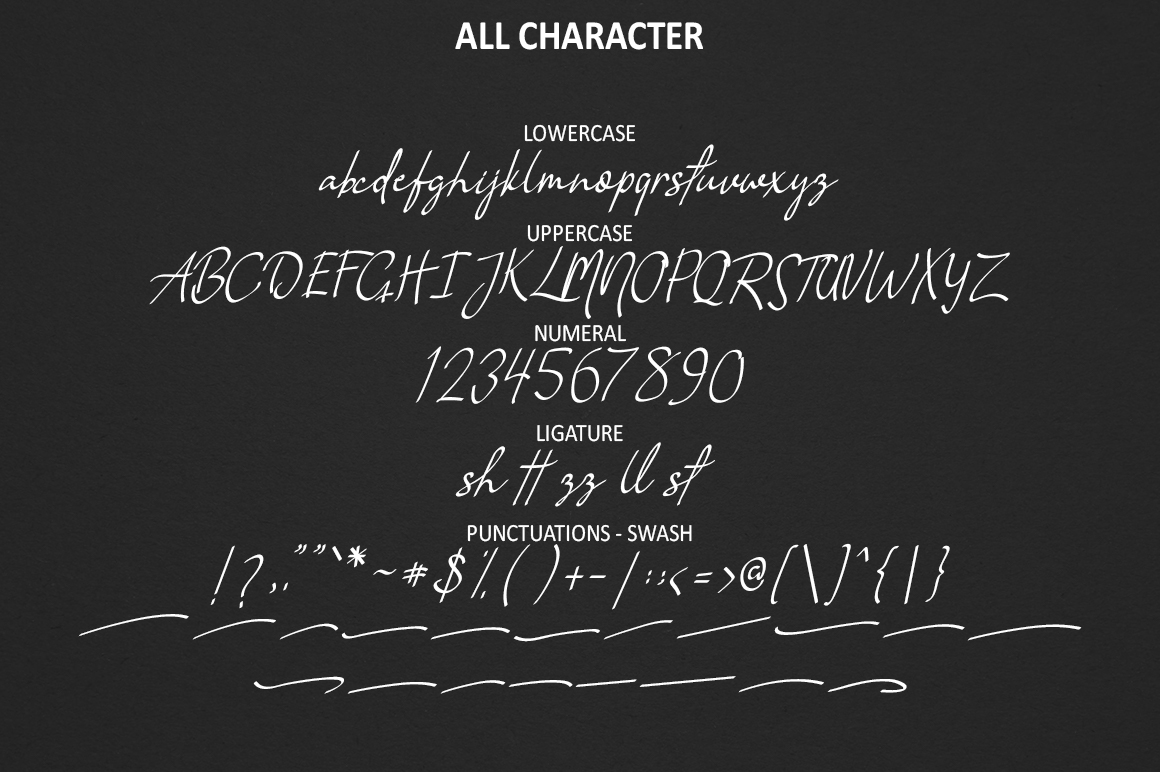 ALL CHARACTER
LOWERCASE
abcdefghijklmnopqrstuvwxyz
UPPERCASE
ABCDEFGHIJKLMNOPQRSTUVWXYZ
NUMERAL
1234567890
LIGATURE
sh tt zz ll st
PUNCTUATIONS - SWASH
!?,.""`*~#$%()+-/:;<=>@[\]^{|}